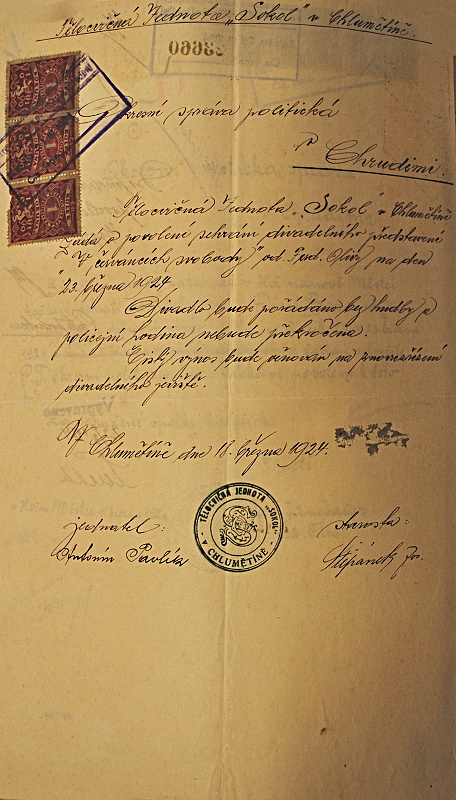 Tělocvičná Jednota „Sokol" v Chlumětíně.
23660
Okresní správa politická
v Chrudimi.
Tělocvičná Jednota „Sokol" v Chlumětíně
žádá o povolení sehrání divadelního představení
"V červáncích svobody" od Ferd. Olivy na den
23. března 1924.
Divadlo bude pořádáno bez hudby a
policejní hodina nebude překročena.
Čistý výnos bude věnován na znovuzřízení
divadelního jeviště.
V Chlumětíně dne 18. března 1924.
jednatel: starosta:
Antonín Pavlík Štěpánek Jos.
TĚLOCVIČNÁ JEDNOTA „SOKOL"
CHLUMĚTÍNĚ